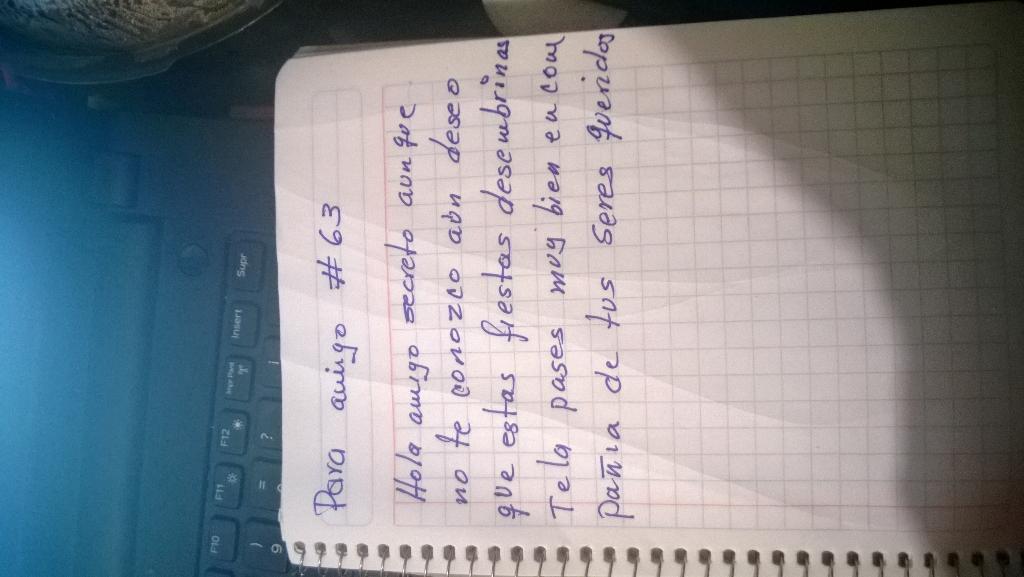 Para amigo #63
Hola amigo secreto aunque
no te conozco aún deseo
que estas fiestas desembrinas
Te la pases muy bien en com
pañia de tus seres queridos
F10
F11
F12
Impr Pant
Insert
Supr
)
9
=
?
¡